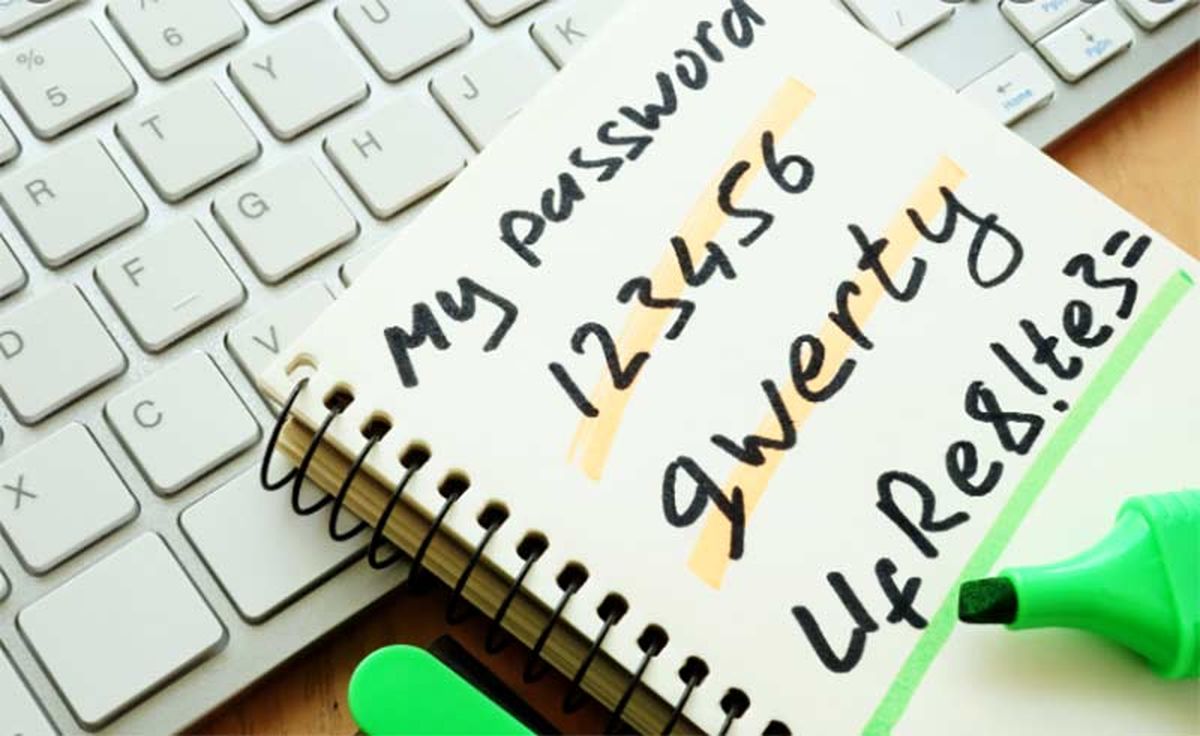 My password
123456
qwerty
UfRe8!te3=
%
5
6
Y
U
K
T
H
J
R
G
D
F
V
C
X
/
Home
PgDn